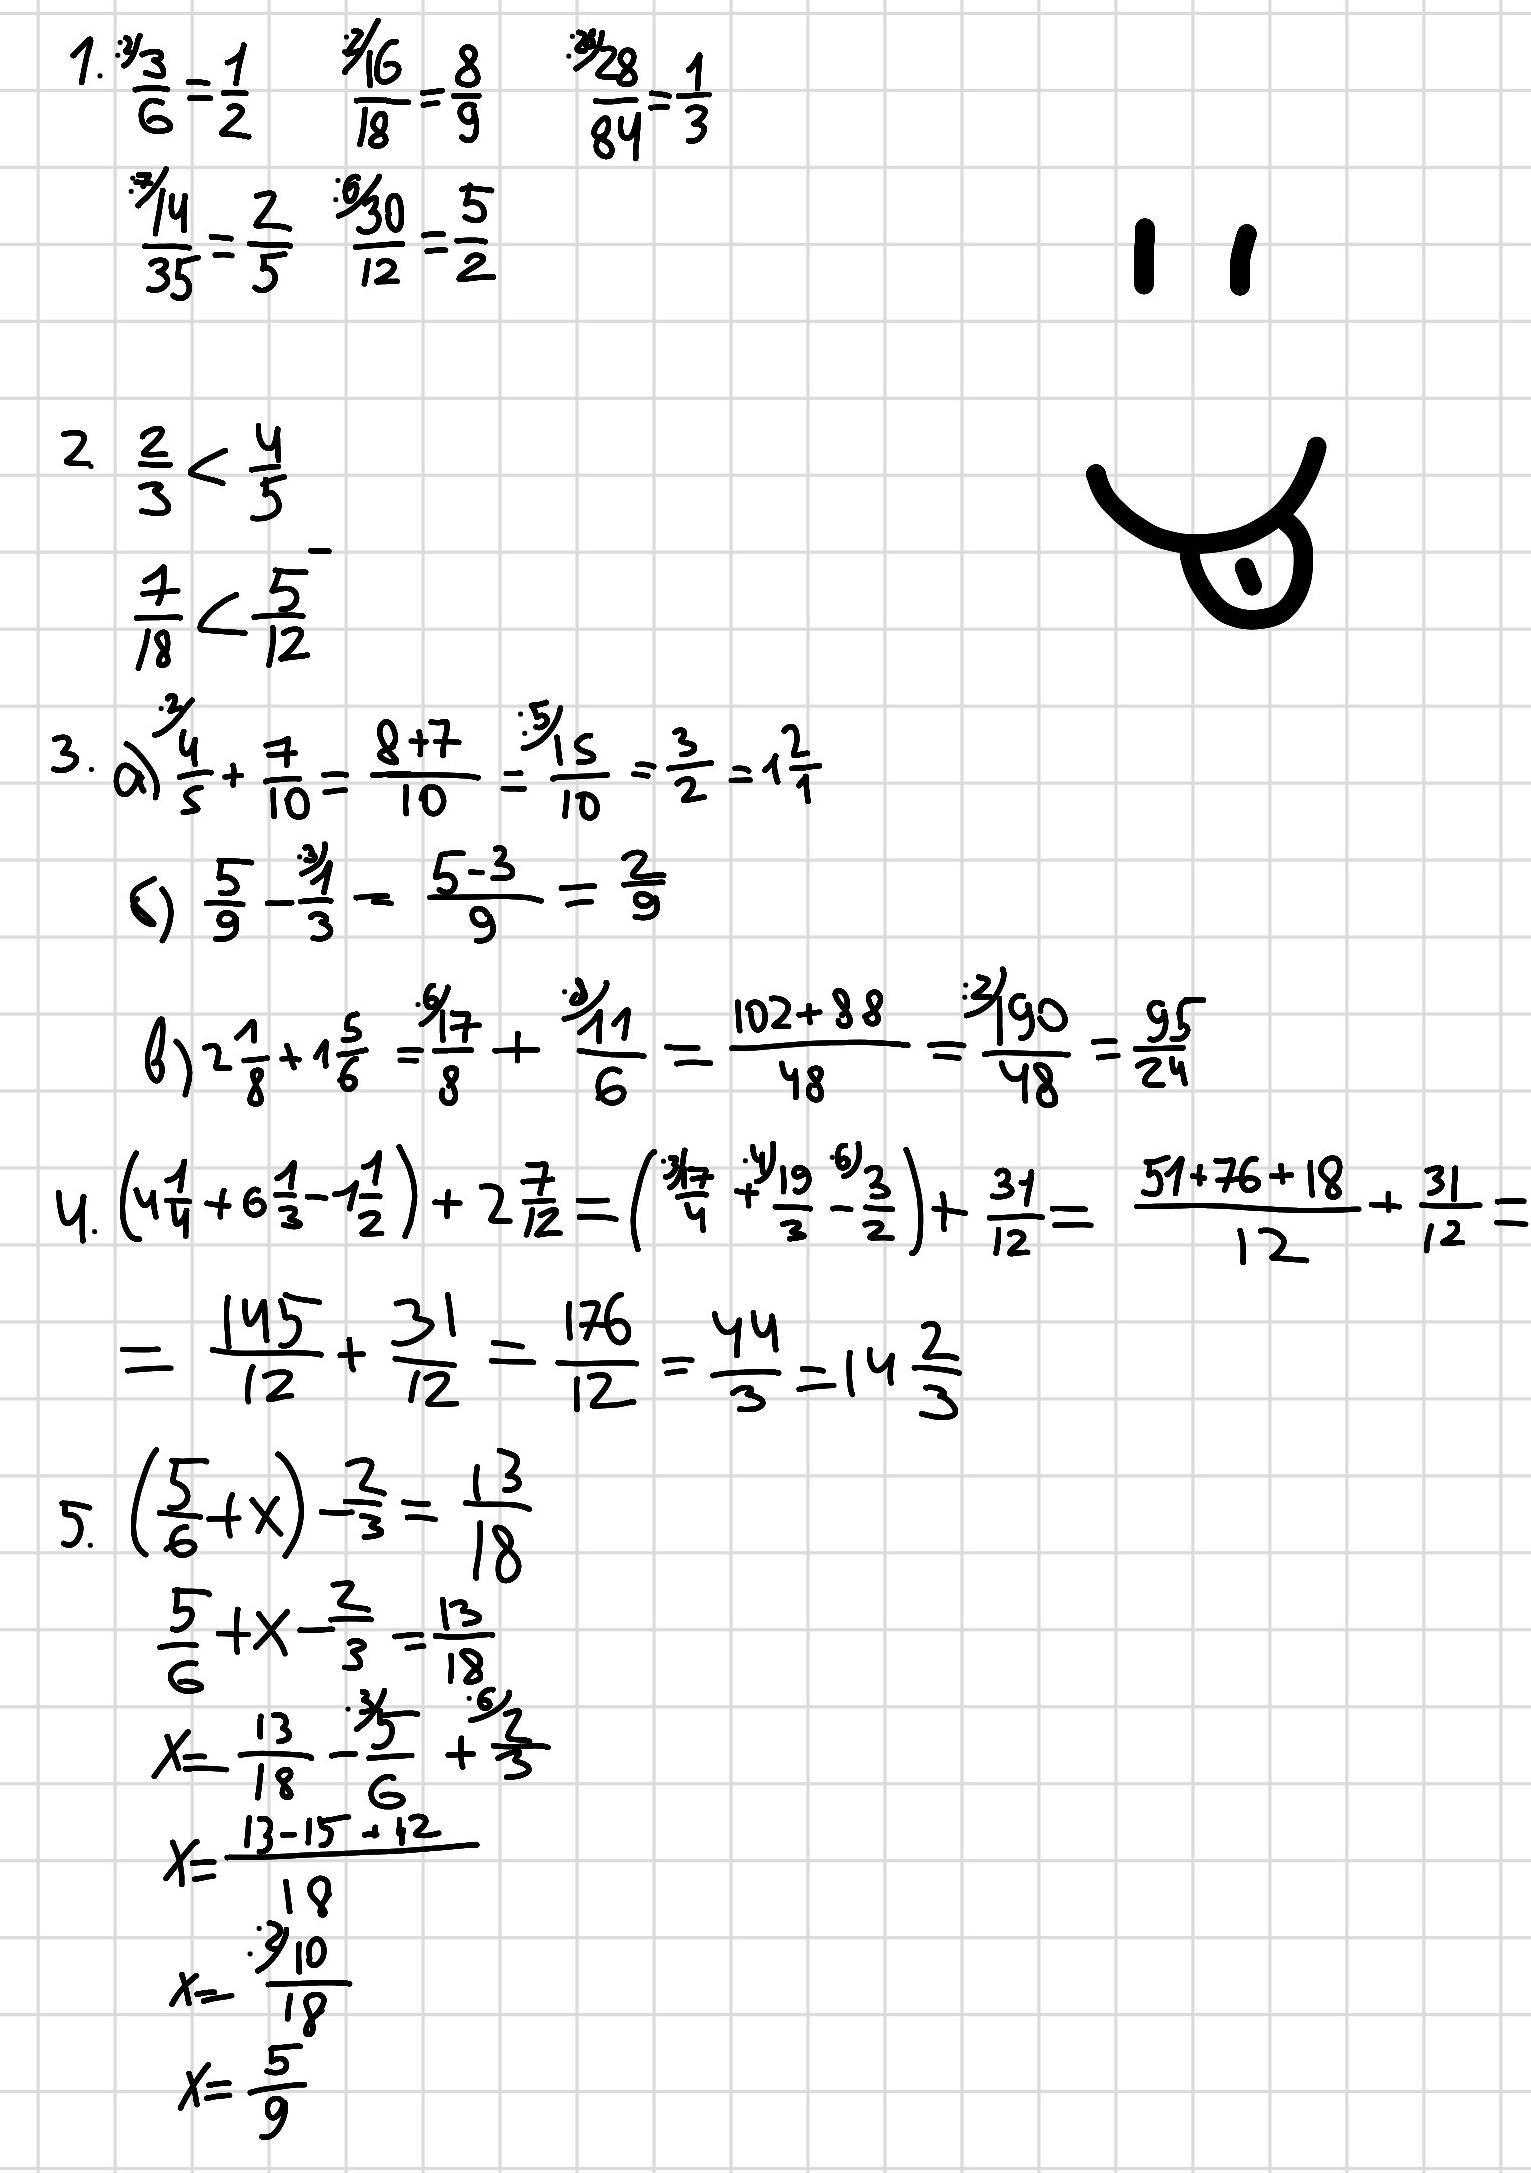 1. :3/ 3/6 = 1/2   :2/ 16/18 = 8/9   :28/ 28/84 = 1/3
:7/ 14/35 = 2/5   :6/ 30/12 = 5/2
2 2/3 < 4/5
7/18 < 5/12
3. а) :2/ 4/5 + 7/10 = 8+7/10 = :5/ 15/10 = 3/2 = 1 2/1
б) 5/9 - :3/ 1/3 = 5-3/9 = 2/9
в) 2 1/8 + 1 5/6 = :6/ 17/8 + 11/6 = 102+88/48 = :2/ 190/48 = 95/24
4. (4 1/4 + 6 1/3 - 1 1/2) + 2 7/12 = (:3/ 17/4 + :4/ 19/3 - :6/ 3/2) + 31/12 = 51+76+18/12 + 31/12 =
= 145/12 + 31/12 = 176/12 = 44/3 = 14 2/3
5. (5/6 + x) - 2/3 = 13/18
5/6 + x - 2/3 = 13/18
x = 13/18 - :3/ 5/6 + :6/ 2/3
x = 13-15+12/18
x = :2/ 10/18
x = 5/9